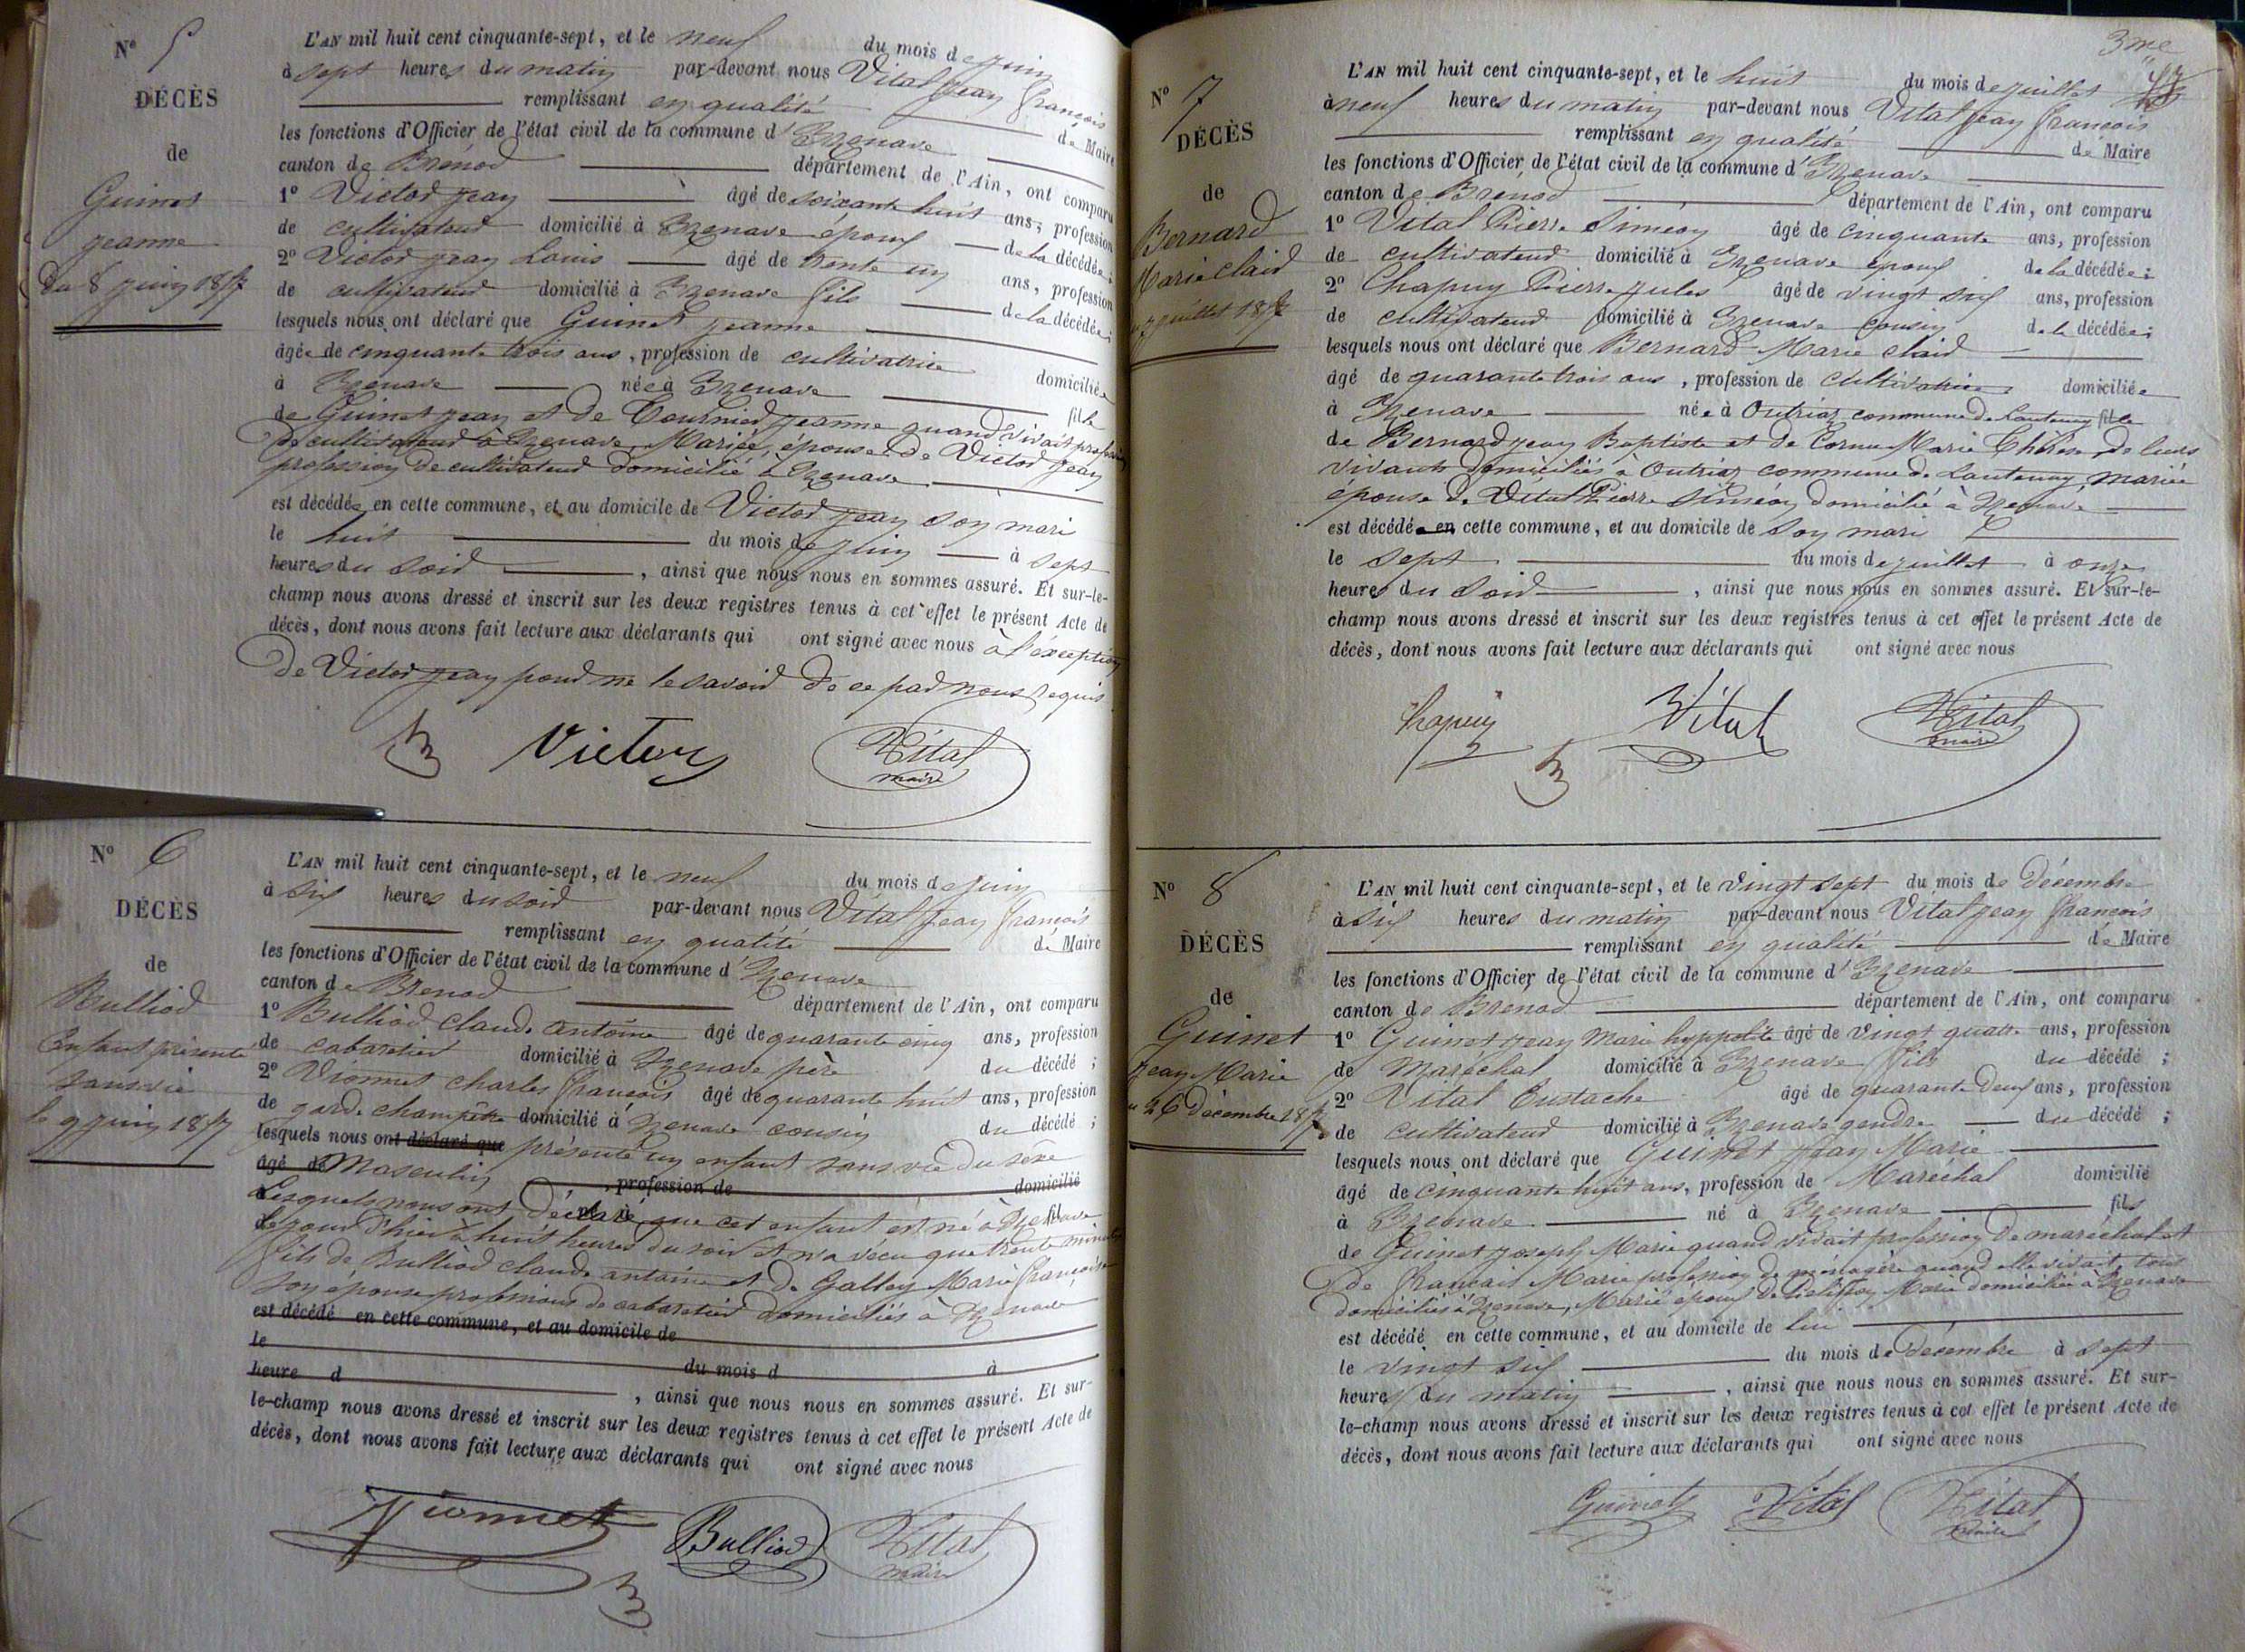 N° 5
DÉCÈS
de
Guinet
jeanne
Du 8 juin 1857
L'AN mil huit cent cinquante-sept, et le neuf du mois de juin
à sept heures du matin par-devant nous Vital jean françois
remplissant en qualité de Maire
les fonctions d'Officier de l'état civil de la commune d'Izenave
canton de Brénod département de l'Ain, ont comparu
1° Victor jean âgé de soixante huit ans, profession
de cultivateur domicilié à Izenave époux de la décédée;
2° Victor jean Louis âgé de trente un ans, profession
de cultivateur domicilié à Izenave fils de la décédée;
lesquels nous ont déclaré que Guinet jeanne
âgée de cinquante trois ans, profession de cultivatrice domiciliée
à Izenave née à Izenave fille
de Guinet jean et de Tournier jeanne quand vivait profession
de cultivateur à Izenave, Mariée, épouse de Victor jean
profession de cultivateur domicilié à Izenave
est décédée en cette commune, et au domicile de Victor jean son mari
le huit du mois de juin à sept
heures du soir, ainsi que nous nous en sommes assuré. Et sur-le-
champ nous avons dressé et inscrit sur les deux registres tenus à cet effet le présent Acte de
décès, dont nous avons fait lecture aux déclarants qui ont signé avec nous à l'exception
de Victor jean pour ne le savoir de ce par nous requis
Victor Vital
maire
N° 6
DÉCÈS
de
Bulliod
Enfant présenté
sans vie
le 9 juin 1857
L'AN mil huit cent cinquante-sept, et le neuf du mois de juin
à six heures du soir par-devant nous Vital jean françois
remplissant en qualité de Maire
les fonctions d'Officier de l'état civil de la commune d'Izenave
canton de Brenod département de l'Ain, ont comparu
1° Bulliod claude antoine âgé de quarante cinq ans, profession
de cabaretier domicilié à Izenave père du décédé;
2° Vionnet charles françois âgé de quarante huit ans, profession
de garde champêtre domicilié à Izenave cousin du décédé;
lesquels nous ont déclaré que présenté un enfant sans vie du sexe
âgé de Masculin, profession de domicilié
Lesquels nous ont déclaré que cet enfant est né à Izenave
le jour d'hier à huit heures du soir et n'a vécu que trente minutes
fils de Bulliod claude antoine et de Galley Marie françoise
son épouse professions de cabaretier domiciliés à Izenave
est décédé en cette commune, et au domicile de
le du mois d à
heure d, ainsi que nous nous en sommes assuré. Et sur-
le-champ nous avons dressé et inscrit sur les deux registres tenus à cet effet le présent Acte de
décès, dont nous avons fait lecture aux déclarants qui ont signé avec nous
Vionnet Bulliod Vital
maire
3me
N° 7
DÉCÈS
de
Bernard
Marie clair
7 juillet 1857
L'AN mil huit cent cinquante-sept, et le huit du mois de juillet
à neuf heures du matin par-devant nous Vital jean françois
remplissant en qualité de Maire
les fonctions d'Officier de l'état civil de la commune d'Izenave
canton de Brenod département de l'Ain, ont comparu
1° Vital Pierre Siméon âgé de cinquante ans, profession
de cultivateur domicilié à Izenave époux de la décédée;
2° Chapuy Pierre jules âgé de vingt six ans, profession
de cultivateur domicilié à Izenave cousin de la décédée;
lesquels nous ont déclaré que Bernard Marie clair
âgé de quarante trois ans, profession de cultivatrice domiciliée
à Izenave née à Outriaz commune de Lantenay fille
de Bernard jean Baptiste et de Cornu Marie Thérèse de leurs
vivants domiciliés à Outriaz commune de Lantenay, mariée
épouse de Vital Pierre Siméon domicilié à Izenave
est décédée en cette commune, et au domicile de son mari
le sept du mois de juillet à onze
heures du soir, ainsi que nous nous en sommes assuré. Et sur-le-
champ nous avons dressé et inscrit sur les deux registres tenus à cet effet le présent Acte de
décès, dont nous avons fait lecture aux déclarants qui ont signé avec nous
Chapuy Vital Vital
maire
N° 8
DÉCÈS
de
Guinet
jean Marie
26 décembre 1857
L'AN mil huit cent cinquante-sept, et le vingt sept du mois de décembre
à six heures du matin par-devant nous Vital jean françois
remplissant en qualité de Maire
les fonctions d'Officier de l'état civil de la commune d'Izenave
canton de Brenod département de l'Ain, ont comparu
1° Guinet jean Marie hyppolite âgé de vingt quatre ans, profession
de Maréchal domicilié à Izenave fils du décédé;
2° Vital Eustache âgé de quarante deux ans, profession
de cultivateur domicilié à Izenave gendre du décédé;
lesquels nous ont déclaré que Guinet jean Marie
âgé de cinquante huit ans, profession de Maréchal domicilié
à Izenave né à Izenave fils
de Guinet joseph Marie quand vivait profession de maréchal et
de françois Marie profession de ménagère quand elle vivait, tous
domiciliés à Izenave, Marié époux de Marie domiciliée à Izenave
est décédé en cette commune, et au domicile de lui
le vingt six du mois de décembre à sept
heures du matin, ainsi que nous nous en sommes assuré. Et sur-
le-champ nous avons dressé et inscrit sur les deux registres tenus à cet effet le présent Acte de
décès, dont nous avons fait lecture aux déclarants qui ont signé avec nous
Guinet Vital Vital
maire